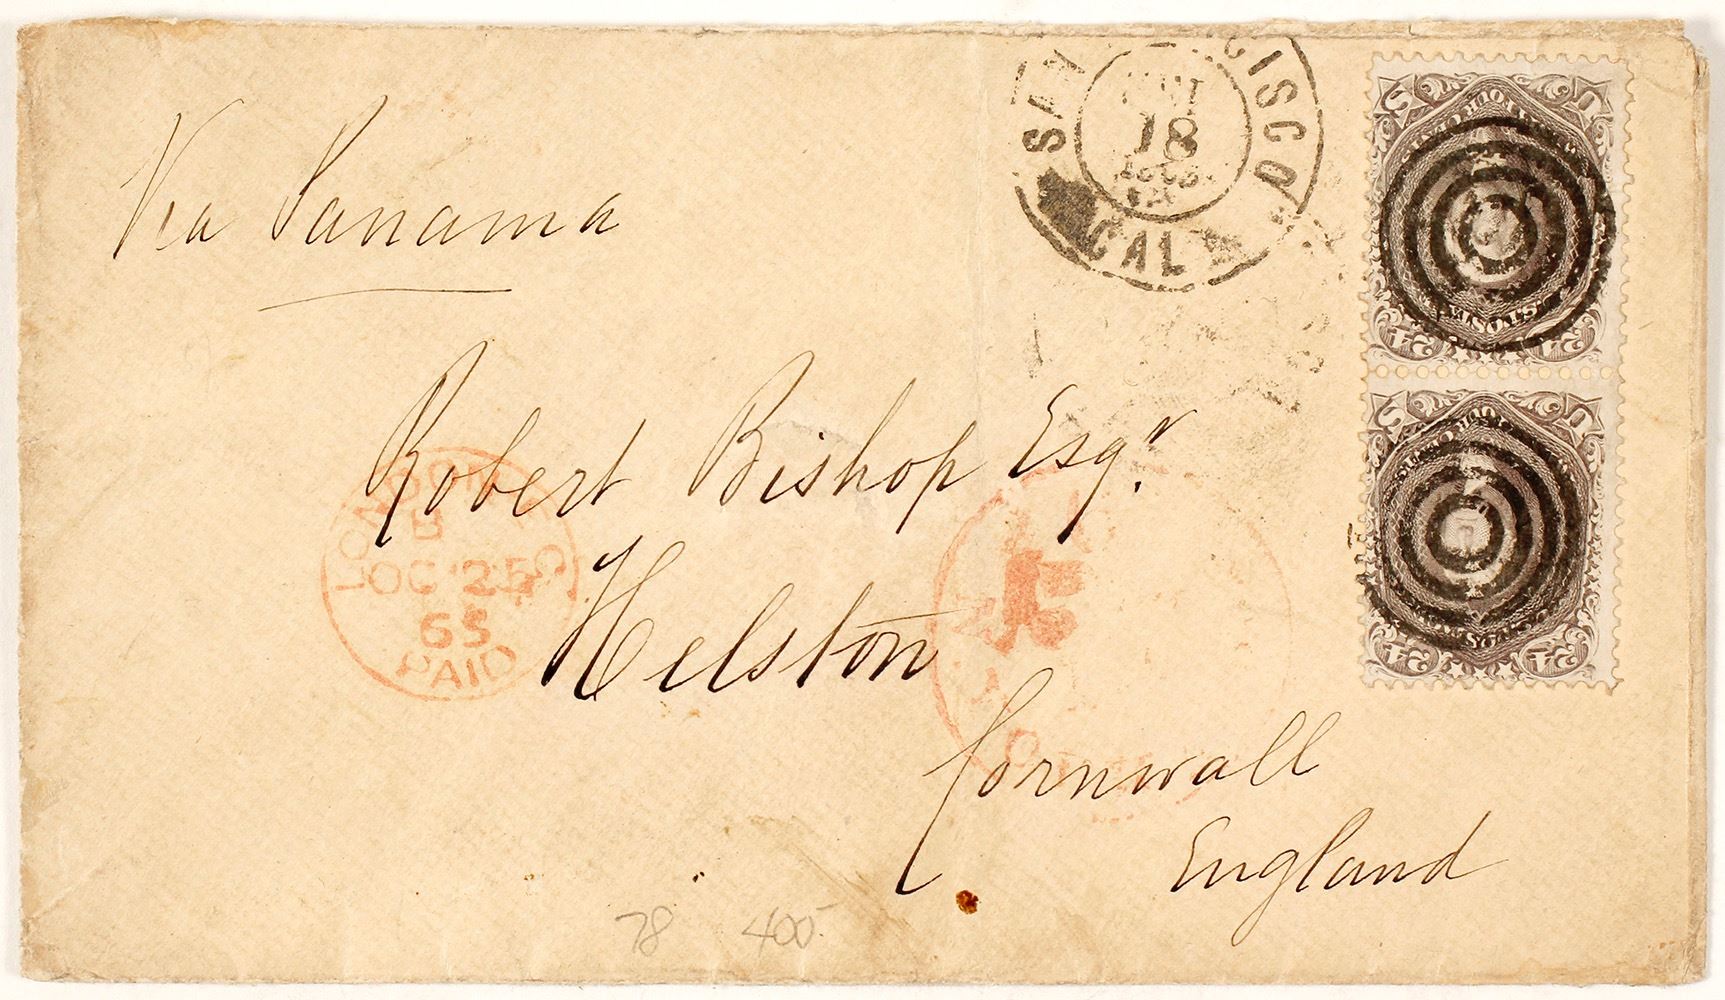 Via Panama
SAN FRANCISCO
18
CAL
U S
24 24
U S
24 24
Robert Bishop Esqr.
Helston
Cornwall
England
LONDON
OC 25
65
PAID
78 400